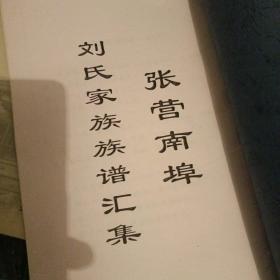 张营南埠
刘氏家族族谱汇集